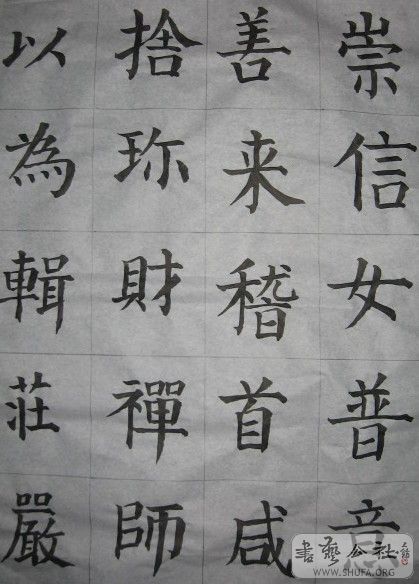 崇信女普意
善来稽首咸
捨珎財禪師
以為輯莊嚴
書藝公社
WWW.SHUFA.ORG